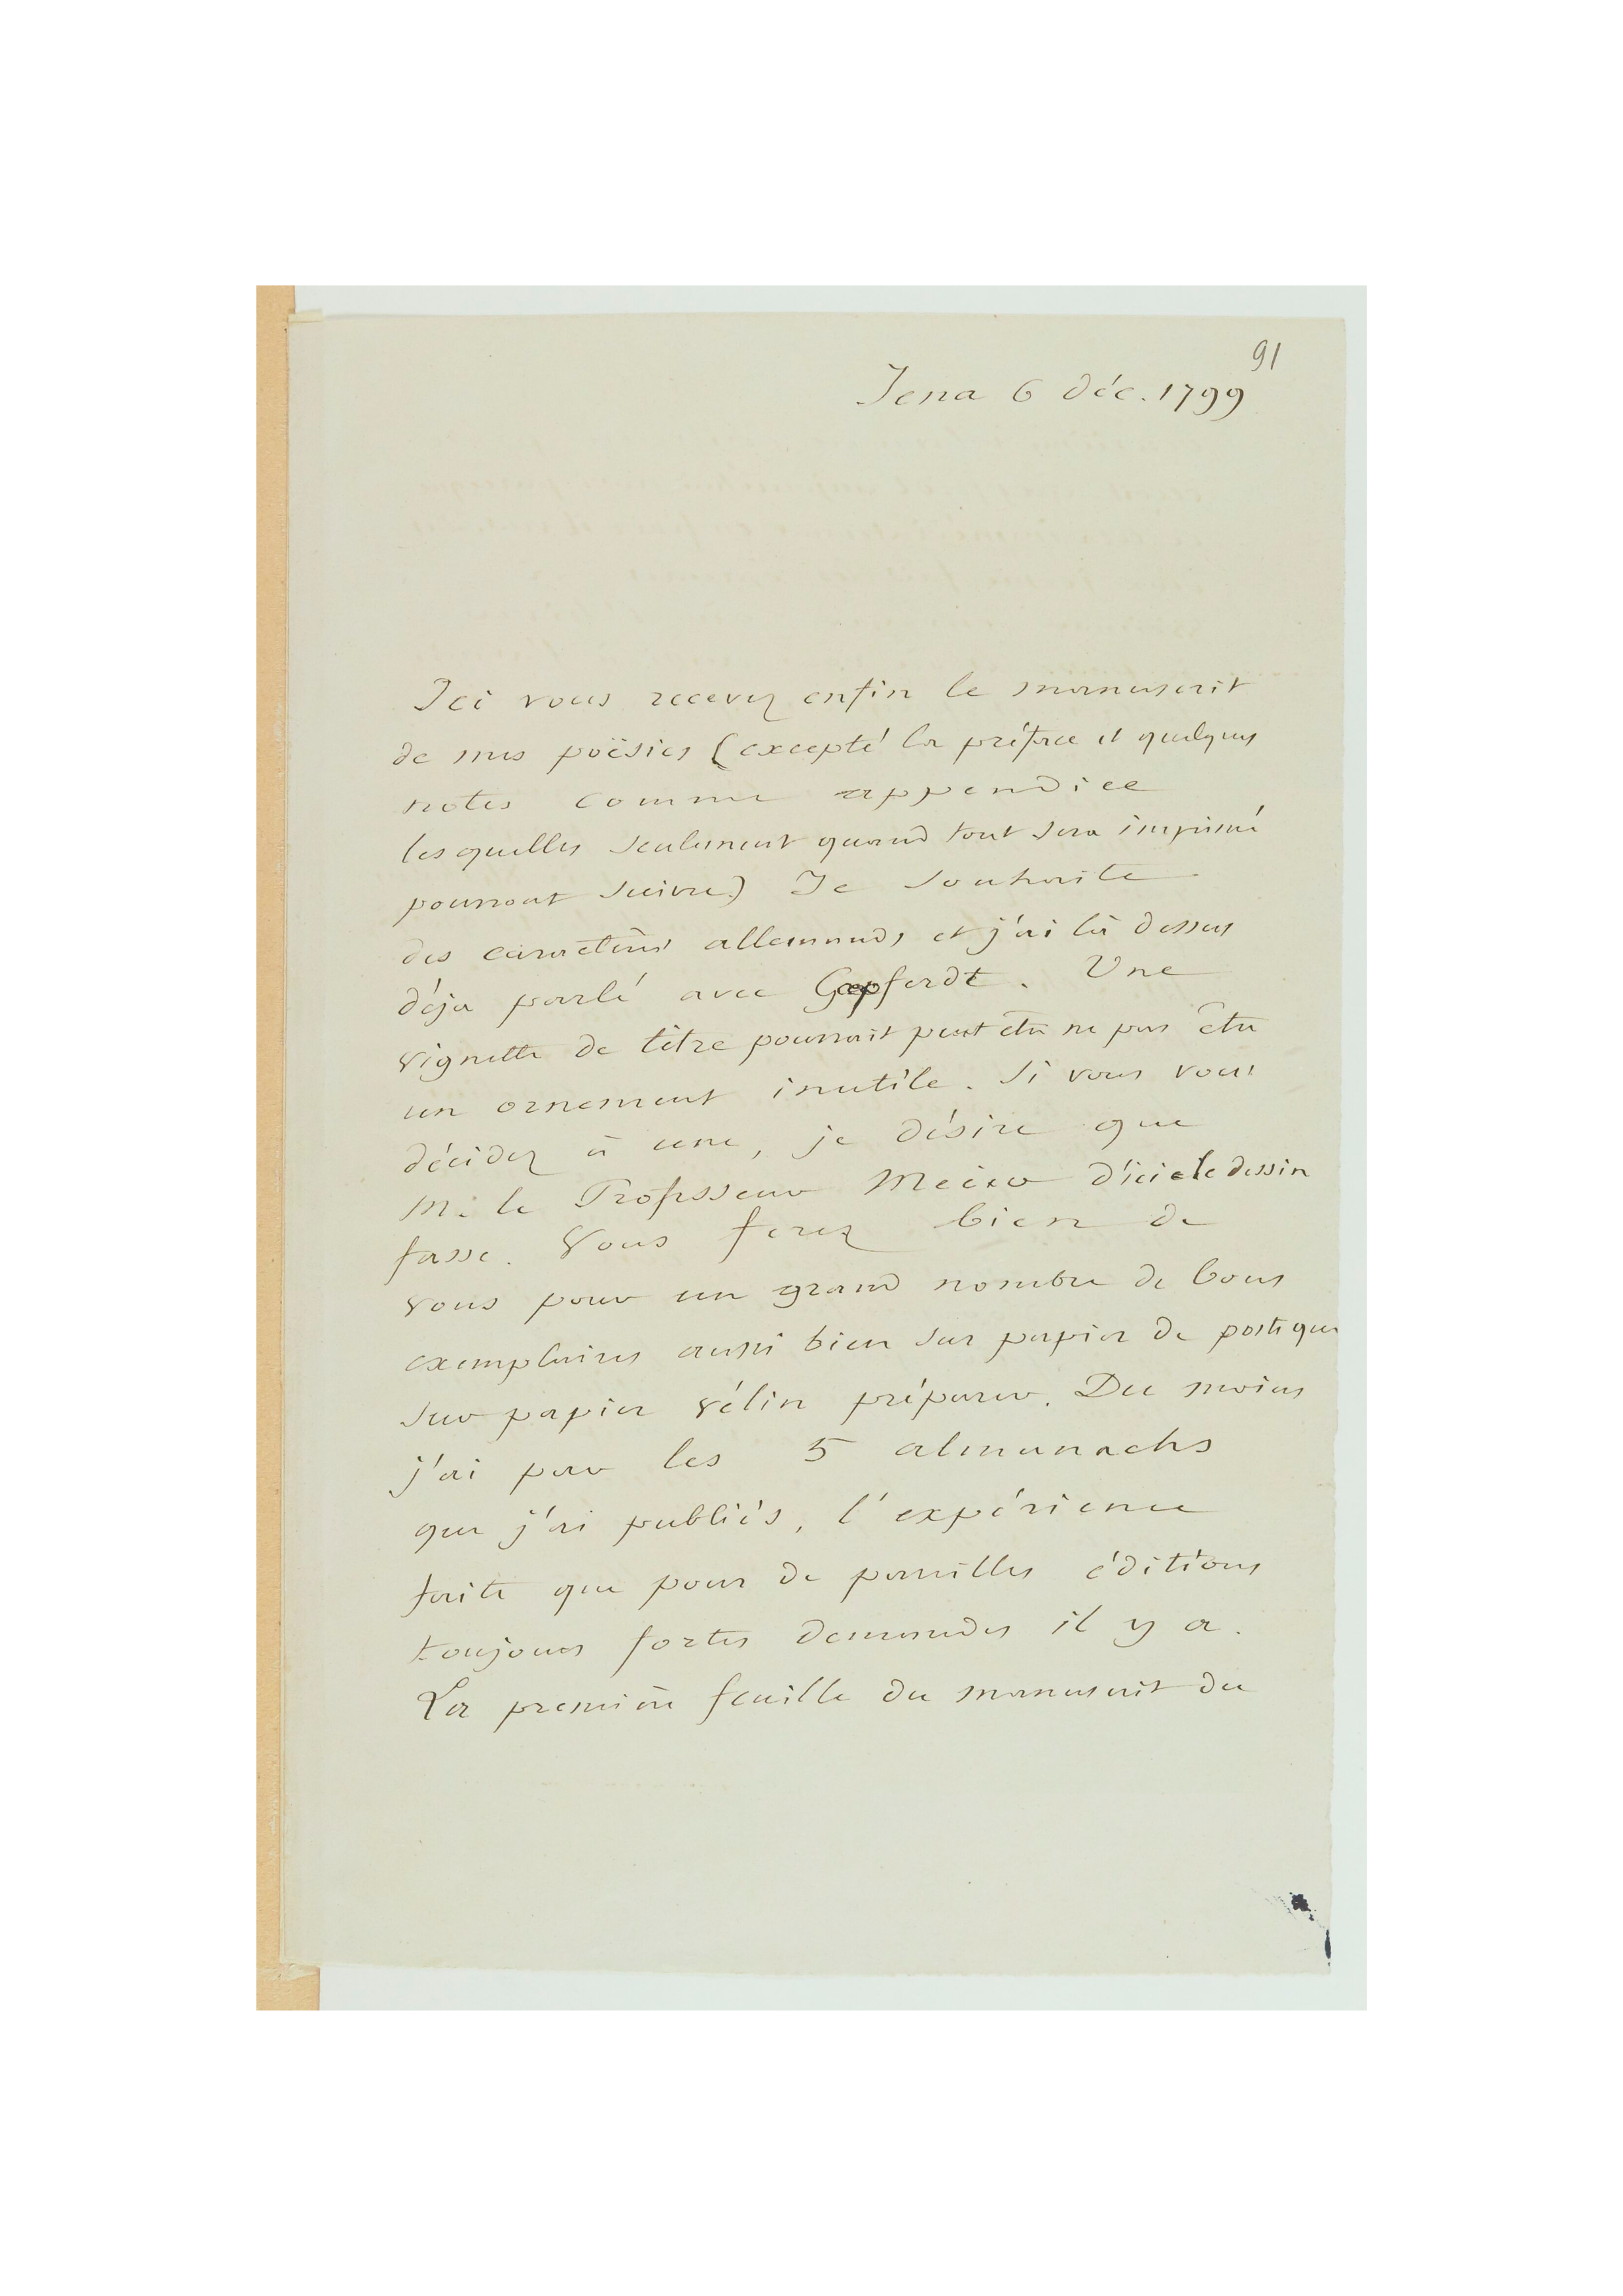 91
Jena 6 déc. 1799
Ici vous recevez enfin le manuscrit
de mes poësies (excepté la préface et quelques
notes comme appendice
lesquelles seulement quand tout sera imprimé
pourront suivre) Je souhaite
des caractères allemands et j'ai là dessus
déja parlé avec Gœpferdt. Une
vignette de titre pourrait peut être ne pas être
un ornement inutile. Si vous vous
décidez à une, je désire que
M. le Professeur d'ici le dessin
fasse. Vous ferez bien de
vous pour un grand nombre de bons
exemplaires aussi bien sur papier de poste que
sur papier vélin préparer. Du moins
j'ai par les 5 almanachs
que j'ai publiés, l'expérience
faite que pour de pareilles éditions
toujours fortes demandes il y a.
La première feuille du manuscrit du